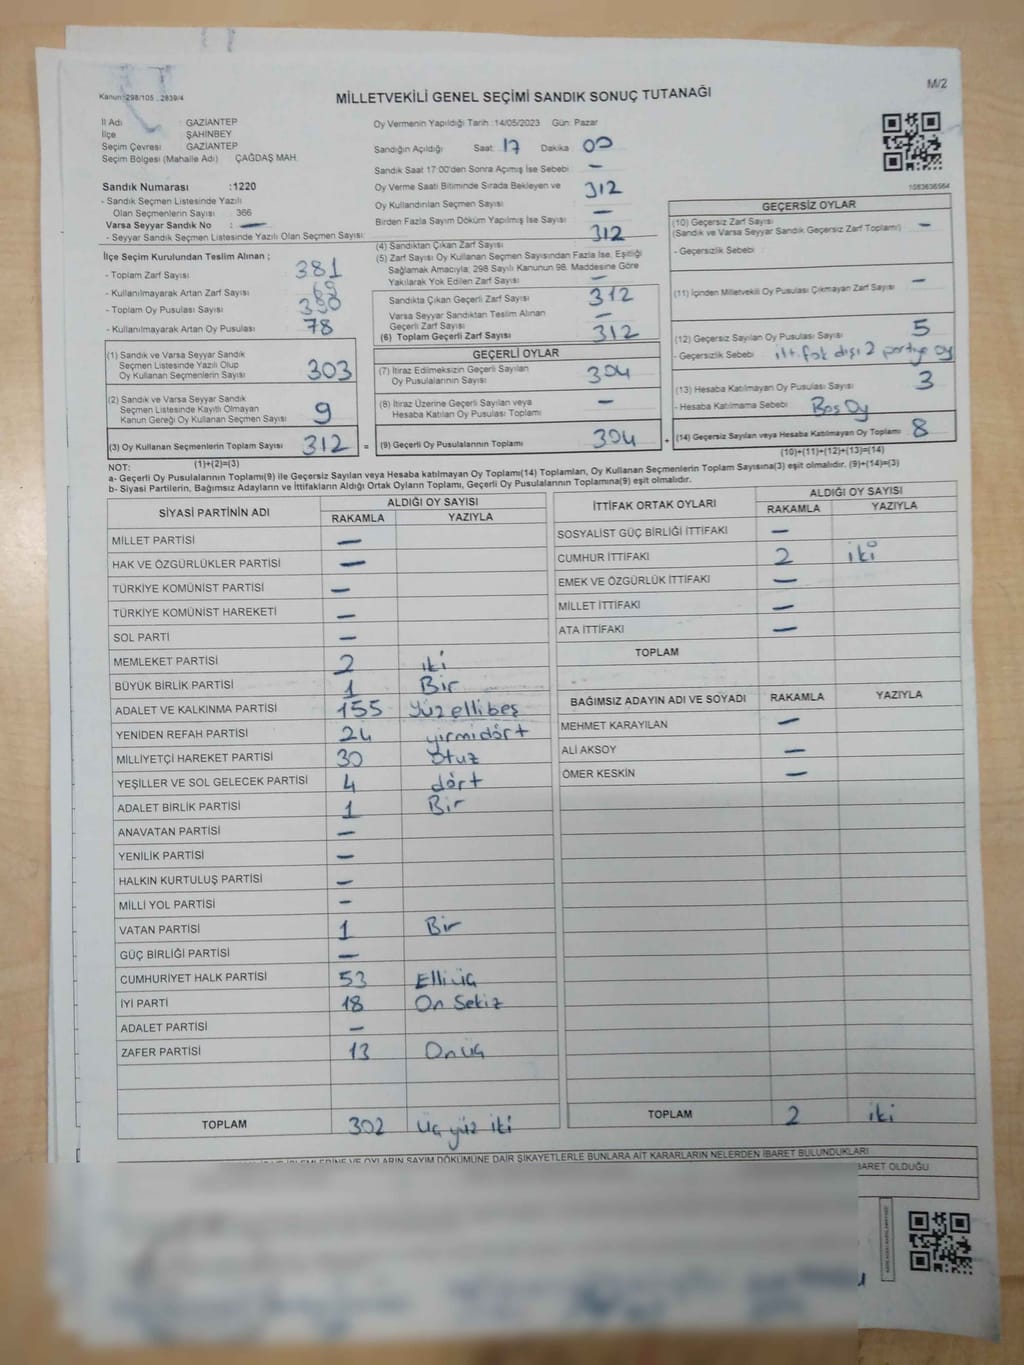 Kanun: 298/105 , 2839/4
M/2
MİLLETVEKİLİ GENEL SEÇİMİ SANDIK SONUÇ TUTANAĞI
İl Adı : GAZİANTEP
İlçe : ŞAHİNBEY
Seçim Çevresi : GAZİANTEP
Seçim Bölgesi (Mahalle Adı) : ÇAĞDAŞ MAH.
Sandık Numarası :1220
- Sandık Seçmen Listesinde Yazılı
Olan Seçmenlerin Sayısı : 366
Varsa Seyyar Sandık No : —
- Seyyar Sandık Seçmen Listesinde Yazılı Olan Seçmen Sayısı:
İlçe Seçim Kurulundan Teslim Alınan ;
- Toplam Zarf Sayısı : 381
- Kullanılmayarak Artan Zarf Sayısı : 69
- Toplam Oy Pusulası Sayısı :
- Kullanılmayarak Artan Oy Pusulası : 78
(1) Sandık ve Varsa Seyyar Sandık
Seçmen Listesinde Yazılı Olup
Oy Kullanan Seçmenlerin Sayısı : 303
(2) Sandık ve Varsa Seyyar Sandık
Seçmen Listesinde Kayıtlı Olmayan
Kanun Gereği Oy Kullanan Seçmen Sayısı : 9
(3) Oy Kullanan Seçmenlerin Toplam Sayısı 312 =
(1)+(2)=(3)
Oy Vermenin Yapıldığı Tarih :14/05/2023 Gün: Pazar
Sandığın Açıldığı Saat: 17 Dakika: 00
Sandık Saat 17:00'den Sonra Açımış İse Sebebi : —
Oy Verme Saati Bitiminde Sırada Bekleyen ve
Oy Kullandırılan Seçmen Sayısı: 312
Birden Fazla Sayım Döküm Yapılmış İse Sayısı : —
(4) Sandıktan Çıkan Zarf Sayısı : 312
(5) Zarf Sayısı Oy Kullanan Seçmen Sayısından Fazla İse, Eşitliği
Sağlamak Amacıyla; 298 Sayılı Kanunun 98. Maddesine Göre
Yakılarak Yok Edilen Zarf Sayısı : —
Sandıkta Çıkan Geçerli Zarf Sayısı : 312
Varsa Seyyar Sandıktan Teslim Alınan
Geçerli Zarf Sayısı : —
(6) Toplam Geçerli Zarf Sayısı : 312
GEÇERLİ OYLAR
(7) İtiraz Edilmeksizin Geçerli Sayılan
Oy Pusulalarının Sayısı : 304
(8) İtiraz Üzerine Geçerli Sayılan veya
Hesaba Katılan Oy Pusulası Toplamı : —
(9) Geçerli Oy Pusulalarının Toplamı : 304 +
1083636564
GEÇERSİZ OYLAR
(10) Geçersiz Zarf Sayısı :
(Sandık ve Varsa Seyyar Sandık Geçersiz Zarf Toplamı) —
- Geçersizlik Sebebi :
(11) İçinden Milletvekili Oy Pusulası Çıkmayan Zarf Sayısı : —
(12) Geçersiz Sayılan Oy Pusulası Sayısı : 5
- Geçersizlik Sebebi : itt.fak dışı 2 partiye oy
(13) Hesaba Katılmayan Oy Pusulası Sayısı : 3
- Hesaba Katılmama Sebebi : Boş Oy
(14) Geçersiz Sayılan veya Hesaba Katılmayan Oy Toplamı : 8
(10)+(11)+(12)+(13)=(14)
NOT:
a- Geçerli Oy Pusulalarının Toplamı(9) ile Geçersiz Sayılan veya Hesaba katılmayan Oy Toplamı(14) Toplamları, Oy Kullanan Seçmenlerin Toplam Sayısına(3) eşit olmalıdır. (9)+(14)=(3)
b- Siyasi Partilerin, Bağımsız Adayların ve İttifakların Aldığı Ortak Oyların Toplamı, Geçerli Oy Pusulalarının Toplamına(9) eşit olmalıdır.
SİYASİ PARTİNİN ADI ALDIĞI OY SAYISI
RAKAMLA YAZIYLA
MİLLET PARTİSİ —
HAK VE ÖZGÜRLÜKLER PARTİSİ —
TÜRKİYE KOMÜNİST PARTİSİ —
TÜRKİYE KOMÜNİST HAREKETİ —
SOL PARTİ —
MEMLEKET PARTİSİ 2 iki
BÜYÜK BİRLİK PARTİSİ 1 Bir
ADALET VE KALKINMA PARTİSİ 155 yüzellibeş
YENİDEN REFAH PARTİSİ 24 yirmidört
MİLLİYETÇİ HAREKET PARTİSİ 30 otuz
YEŞİLLER VE SOL GELECEK PARTİSİ 4 dört
ADALET BİRLİK PARTİSİ 1 Bir
ANAVATAN PARTİSİ —
YENİLİK PARTİSİ —
HALKIN KURTULUŞ PARTİSİ —
MİLLİ YOL PARTİSİ —
VATAN PARTİSİ 1 Bir
GÜÇ BİRLİĞİ PARTİSİ —
CUMHURİYET HALK PARTİSİ 53 Elliüç
İYİ PARTİ 18 On Sekiz
ADALET PARTİSİ —
ZAFER PARTİSİ 13 Onüç
TOPLAM 302 üç yüz iki
İTTİFAK ORTAK OYLARI ALDIĞI OY SAYISI
RAKAMLA YAZIYLA
SOSYALİST GÜÇ BİRLİĞİ İTTİFAKI —
CUMHUR İTTİFAKI 2 iki
EMEK VE ÖZGÜRLÜK İTTİFAKI —
MİLLET İTTİFAKI —
ATA İTTİFAKI —
TOPLAM
BAĞIMSIZ ADAYIN ADI VE SOYADI RAKAMLA YAZIYLA
MEHMET KARAYILAN —
ALİ AKSOY —
ÖMER KESKİN —
TOPLAM 2 iki
OYLARIN SAYIM DÖKÜMÜNE DAİR ŞİKAYETLERLE BUNLARA AİT KARARLARIN NELERDEN İBARET BULUNDUKLARI
İBARET OLDUĞU